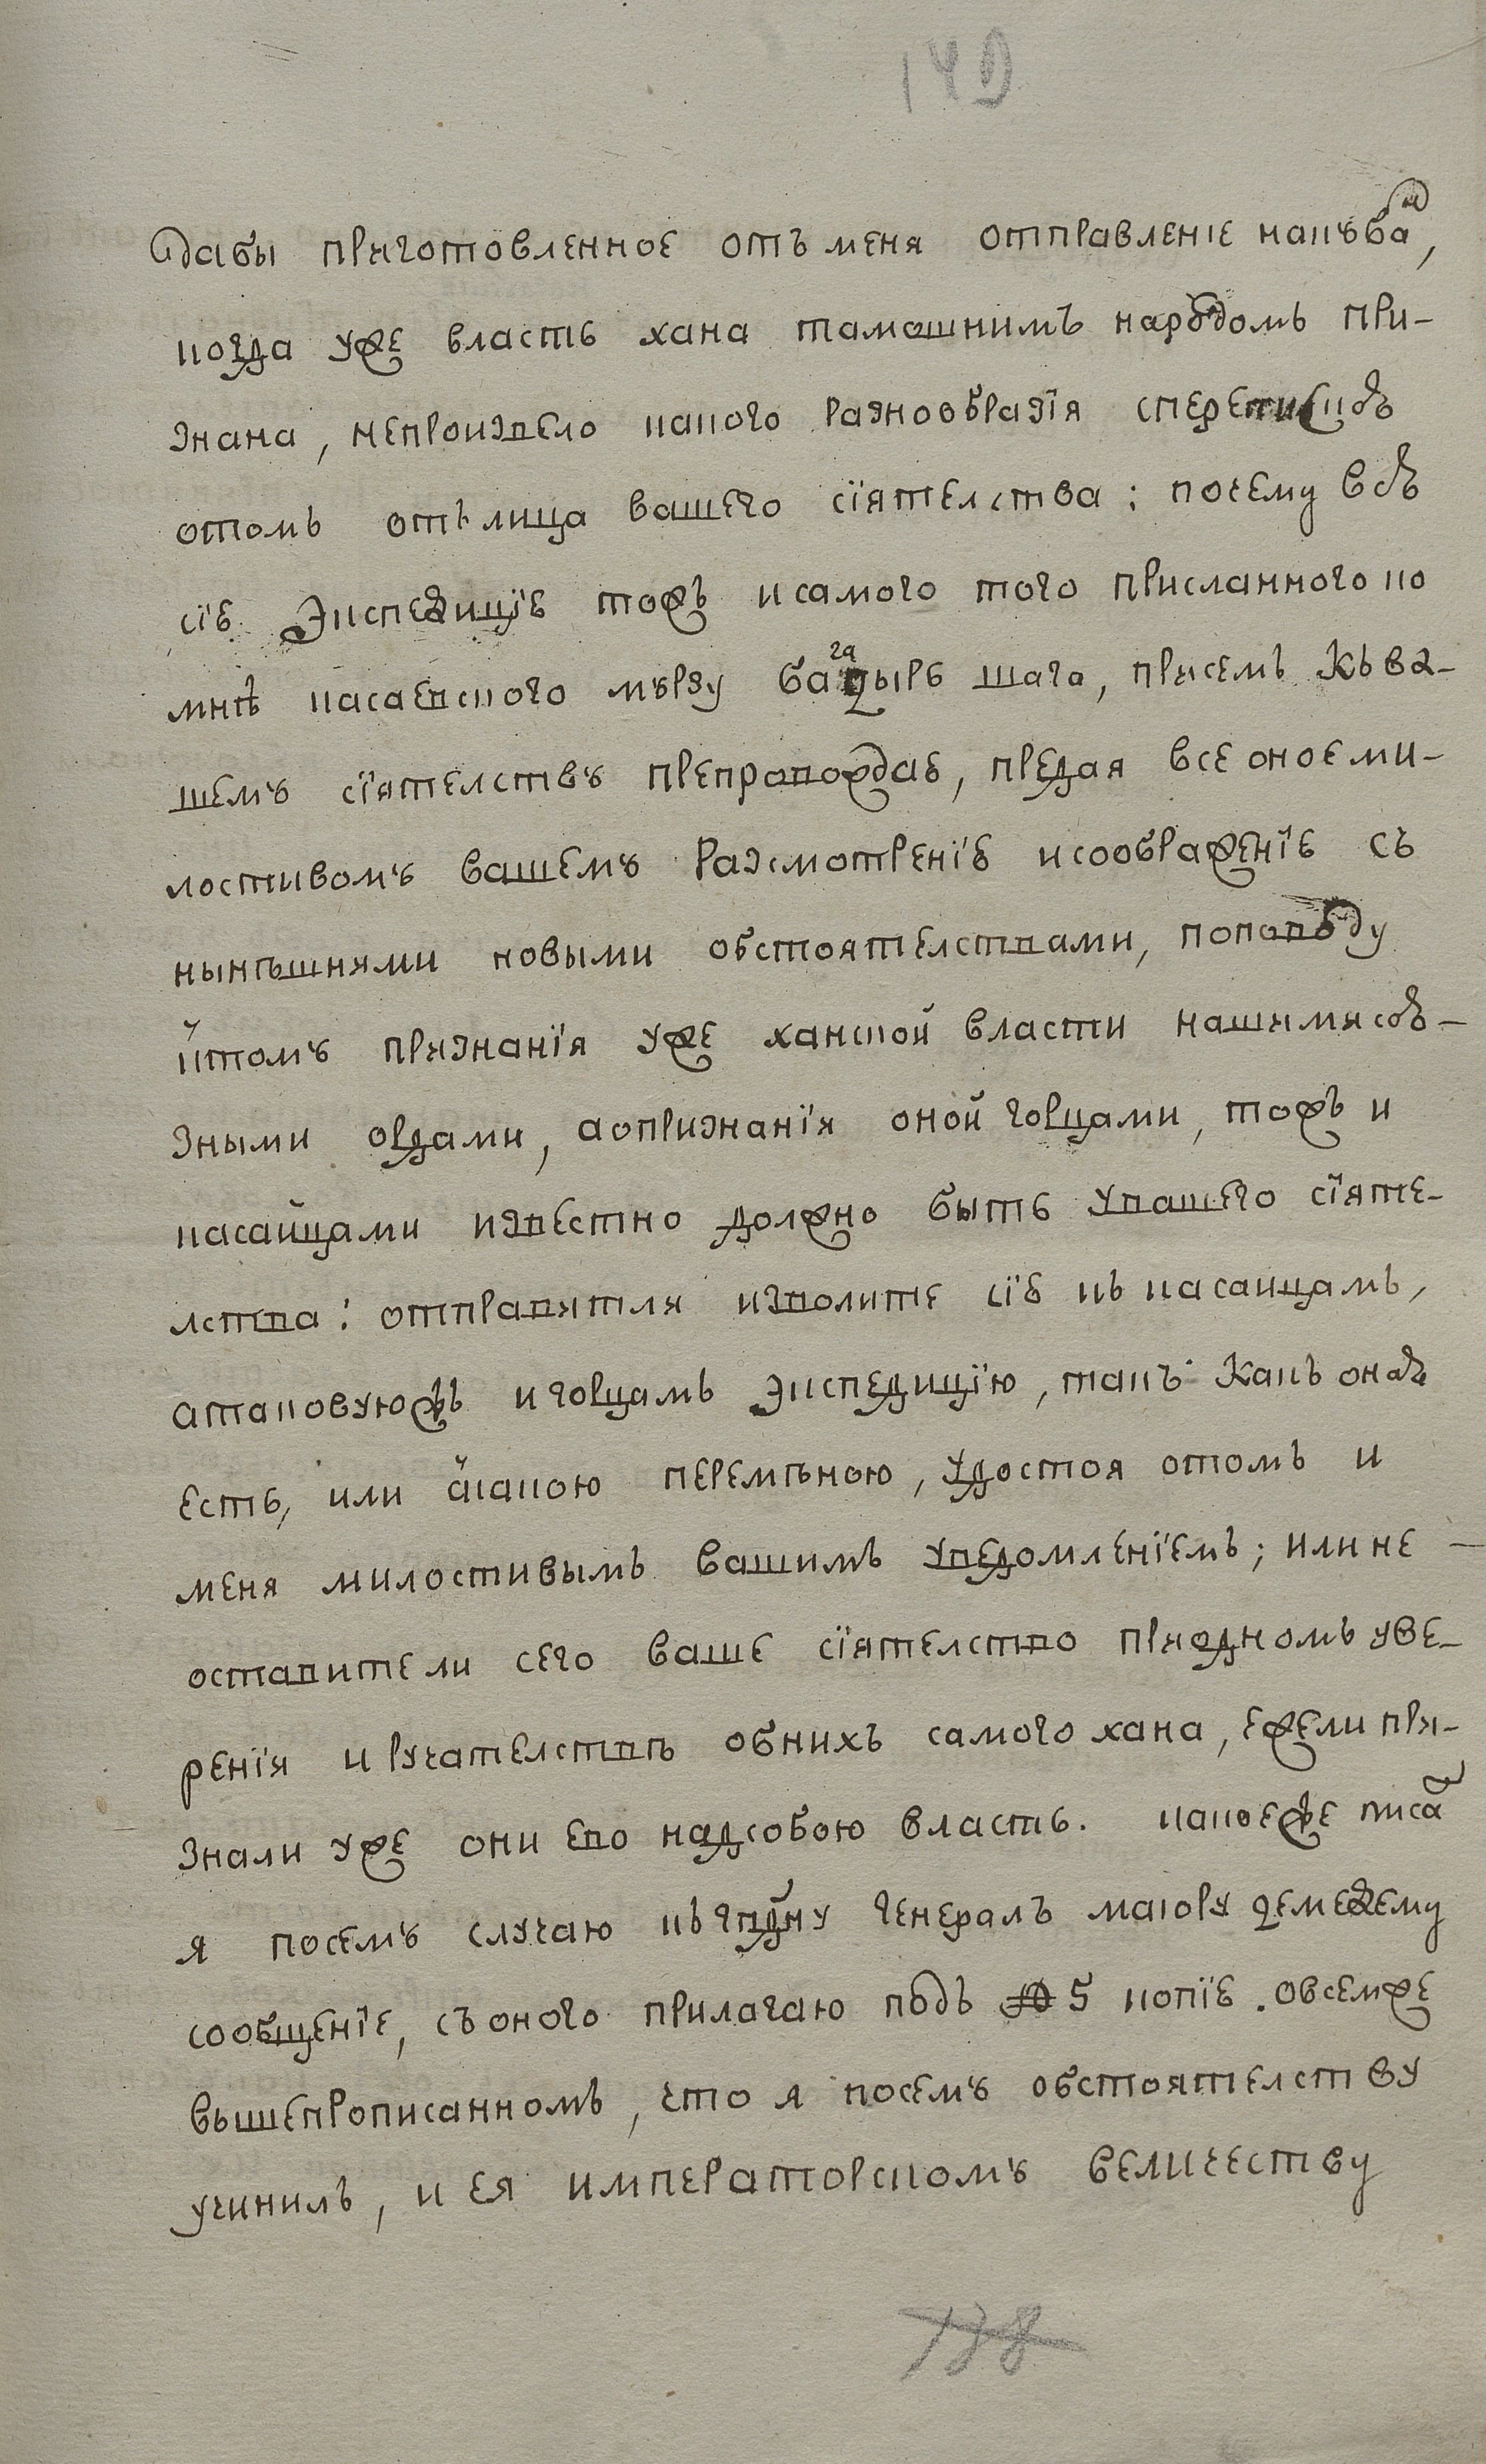 140
дабы приготовленное отъ меня отправленіе накубан,
когда уже власть хана тамошнимъ народомъ при-
знана, непроизвело какого разнообразія сперепискою
отомъ отълица вашего сіятелства: почему всю
сію Экспедицію тожъ исамого того присланного ко
мнѣ касаевского мурзу батырь шага, присемъ Къ ва-
шему сіятелству препровождаю, предая все оное ми-
лостивому вашему разсмотренію исообраяженію съ
нынѣшнями новыми обстоятелствами, поповоду
ктому признанія уже ханской власти нашимя сою-
зными ордами, аопризнанія оной горцами, тожъ и
касайцами известно должно быть увашего сіяте-
лства: отправятля изволите сію къ касаицамъ,
атаковуюжъ игорцамъ экспедицію, такъ Какъ оная
есть, или скакою перемѣною, удостоя отомъ и
меня милостивымъ вашимъ уведомленіемъ; или не
оставители сего ваше сіятелство приодномъ уве-
ренія иручателствѣ обнихъ самого хана, ежели при-
знали уже они ево надсобою власть. какоеже писал
я посему случаю къ гпдну генералъ маіору демедему
сообщеніе, съоного прилагаю подъ № 5 копію. овсемже
вышепрописанномъ, что я посему обстоятелству
учинилъ, и ея императорскому величеству
138